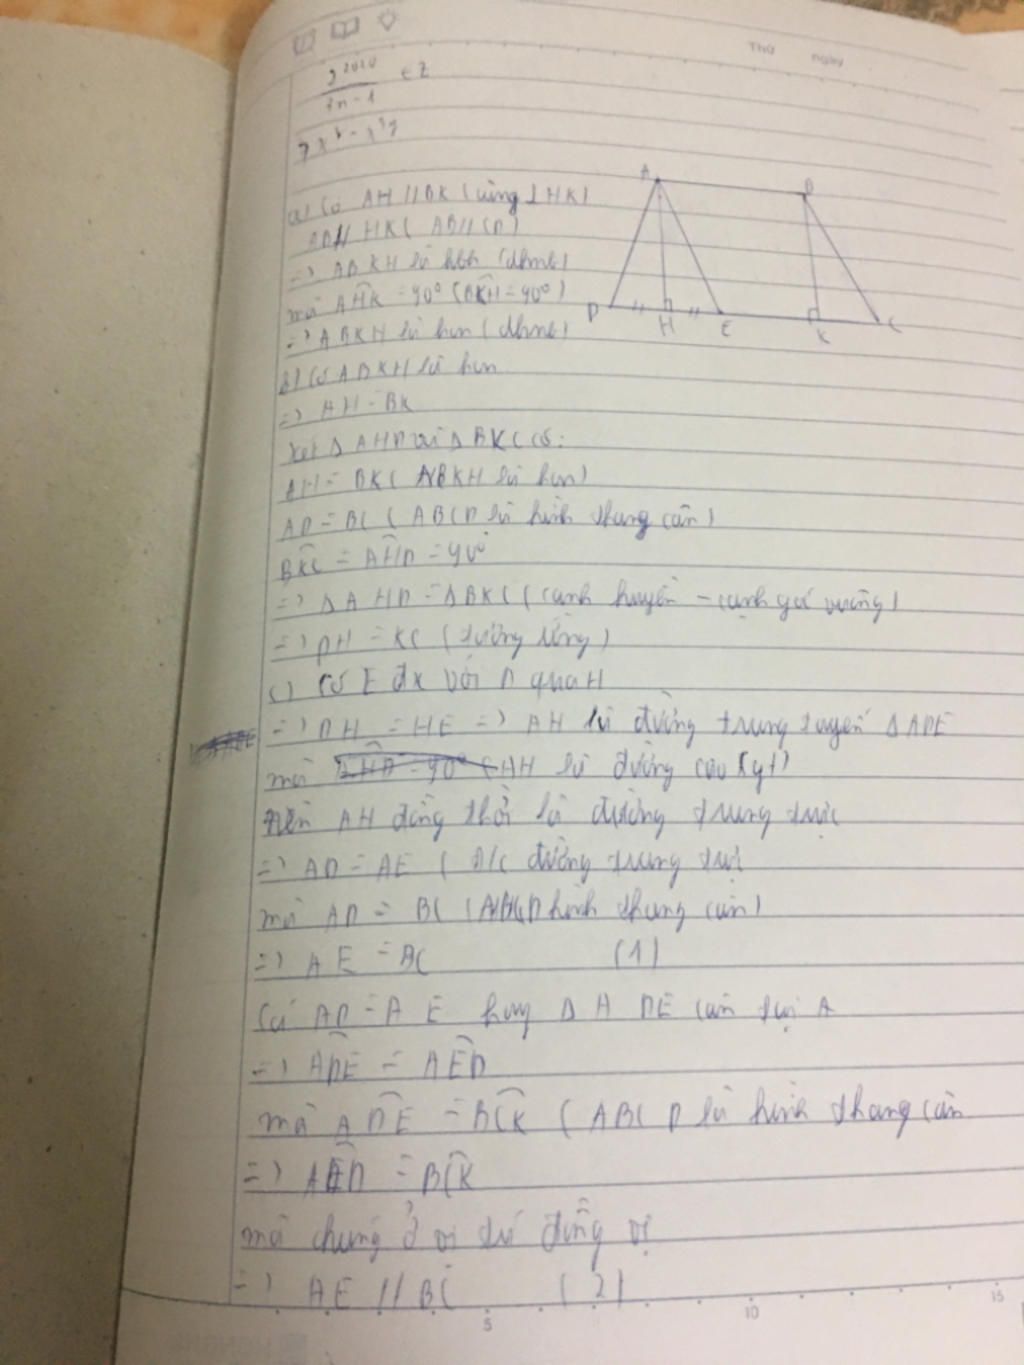 Thứ ngày
2020
2n-1 ∈ Z
a) Có AH // BK (cùng ⊥ HK)
AB // HK (AB // CD)
=> ABKH là hbh (dhnb)
mà AHK = 90° (BKH = 90°)
=> ABKH là hcn (dhnb)
b) Có ABKH là hcn
=> AH = BK
Xét Δ AHD và Δ BKC có:
AH = BK (ABKH là hcn)
AD = BC (ABCD là hình thang cân)
BKC = AHD = 90°
=> Δ AHD = Δ BKC (cạnh huyền - cạnh góc vuông)
=> DH = KC (tương ứng)
c) Có E đx với D qua H
=> DH = HE => AH là đường trung tuyến Δ ADE
mà AH là đường cao (gt)
Nên AH đồng thời là đường trung trực
=> AD = AE ( t/c đường trung trực
mà AD = BC (ABCD hình thang cân)
=> AE = BC (1)
Có AD = AE hay Δ ADE cân tại A
=> ADE = AED
mà ADE = BCK (ABCD là hình thang cân
=> AED = BCK
mà chúng ở vị trí đồng vị
=> AE // BC (2)
A B
D H E K C
5 10 15